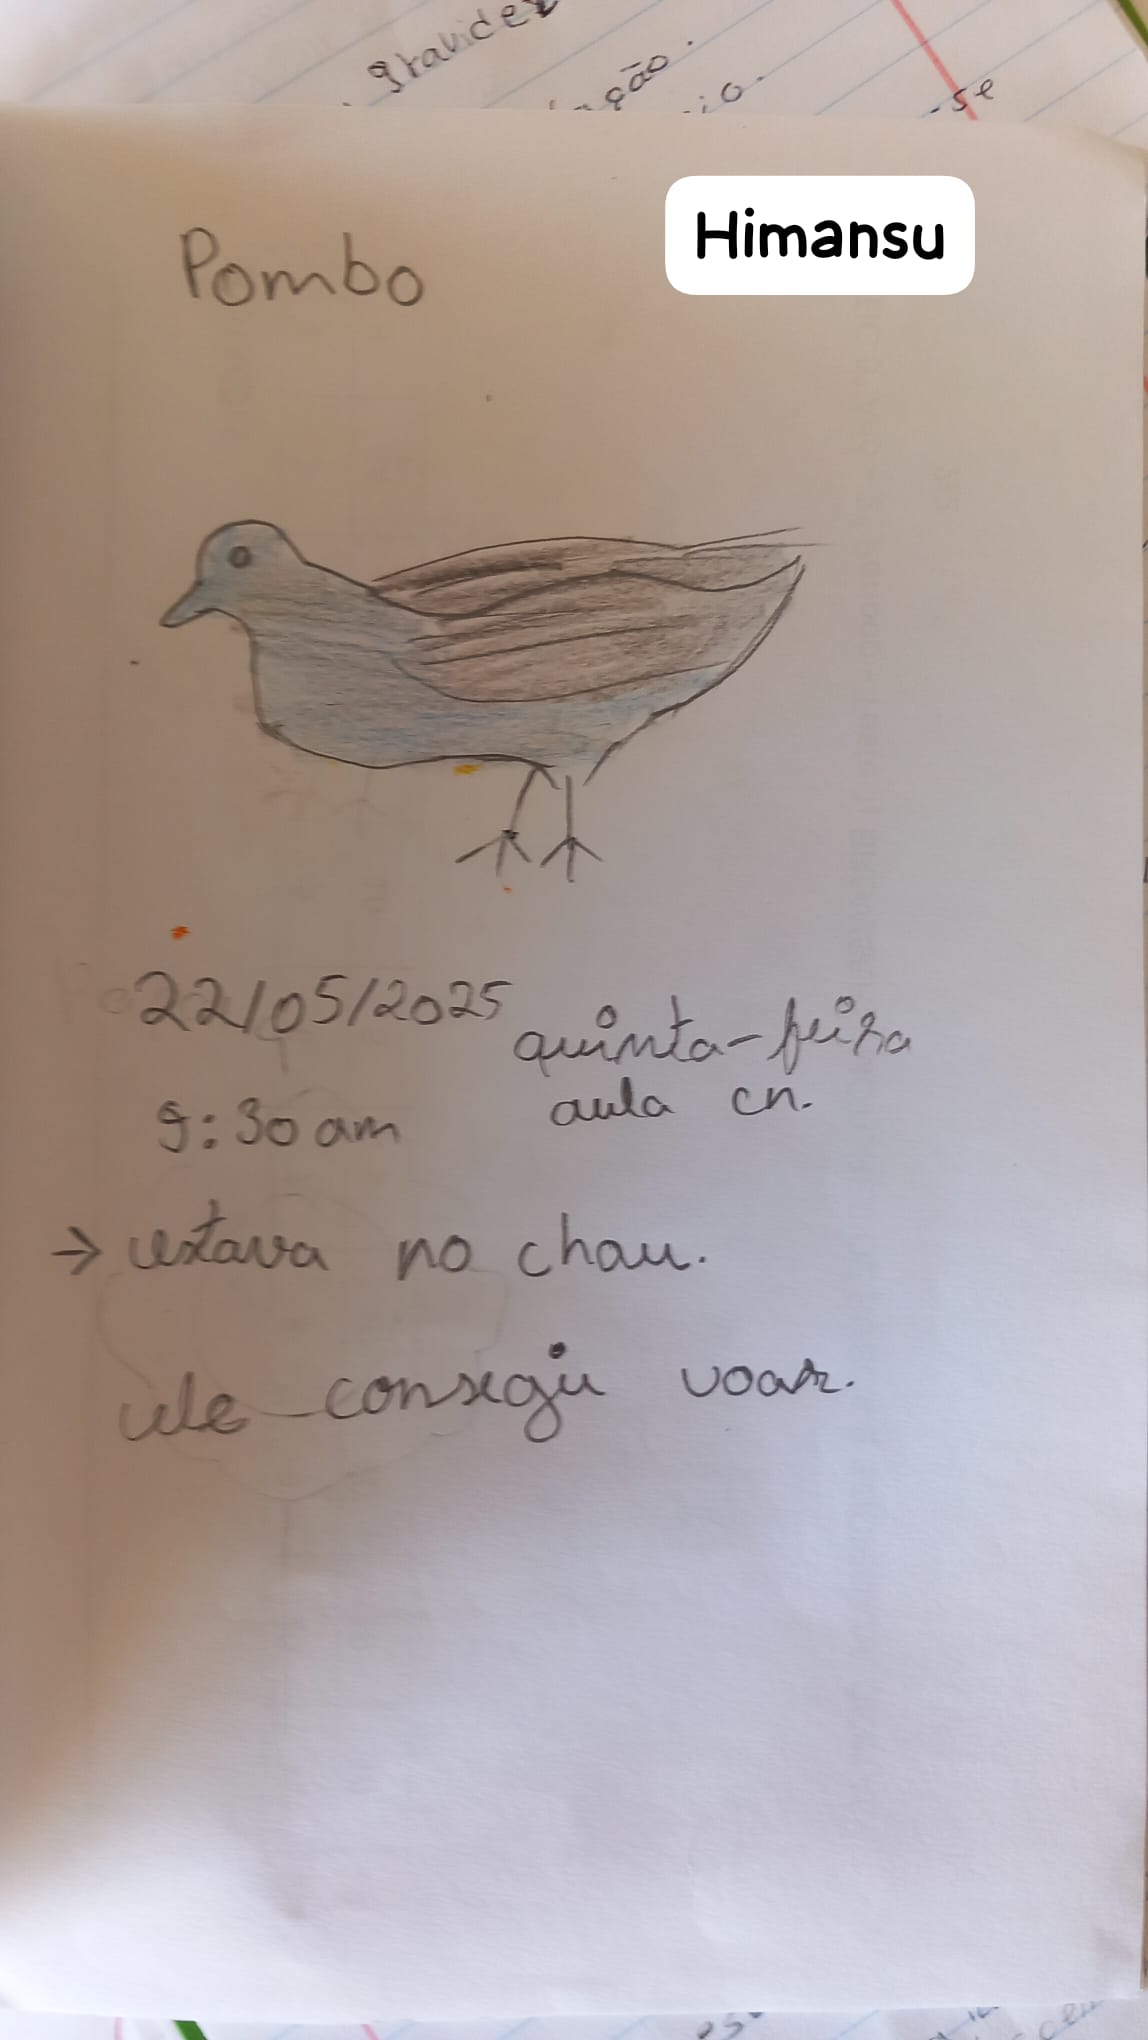 gravidez
ção.
io.
-se
Himansu
Pombo
22/05/2025 quinta-feira
9:30 am aula cn.
→ estava no chau.
ele consegiu voar.